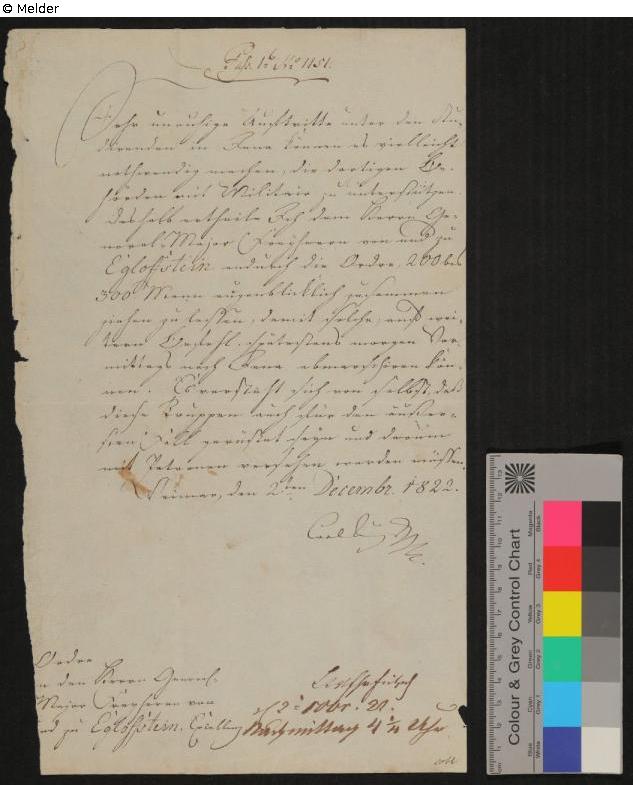 © Melder
No 1151.
Sehr unruhige Auftritte unter den Stu-
direnden in Jena können es vielleicht
nothwendig machen, die dortigen Be-
hörden mit Militair zu unterstützen.
Deshalb ertheile Ich dem Herrn Ge-
neral-Major Freyherrn von und zu
Egloffstein andurch die Ordre, 200 bis
300 Mann augenblicklich zusammen
ziehen zu lassen, damit solche, auf wei-
tern Befehl, spätestens morgen Vor-
mittags nach Jena abmarschiren kön-
nen. Es versteht sich von selbst, daß
diese Truppen auch für den äußer-
sten Fall gerüstet seyn und darum
mit Patronen versehen werden müssen.
Weimar, den 2ten Decembr. 1822.
Carl
Ordre
n den Herrn General-
Major Freyherrn von
nd zu Egloffstein.
Nachmittag 4 1/4 Uhr
Colour & Grey Control Chart
Blue Cyan Green Yellow Red Magenta
White Grey 1 Grey 2 Grey 3 Grey 4 Black